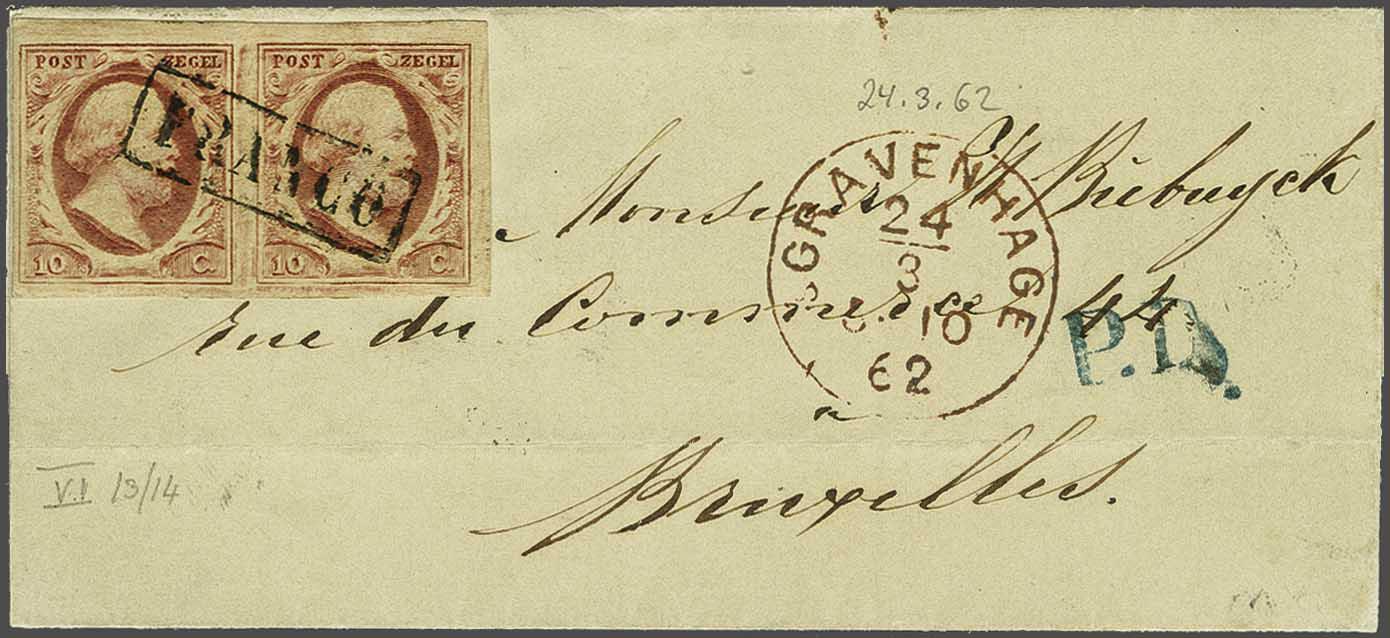 POST ZEGEL
10 C.
POST ZEGEL
10 C.
FRANCO
24.3.62
'SGRAVENHAGE
24
3
10
62
Monsieur Biebuyck
rue du Commerce 44
P.D.
à
Bruxelles.
V.I 13/14